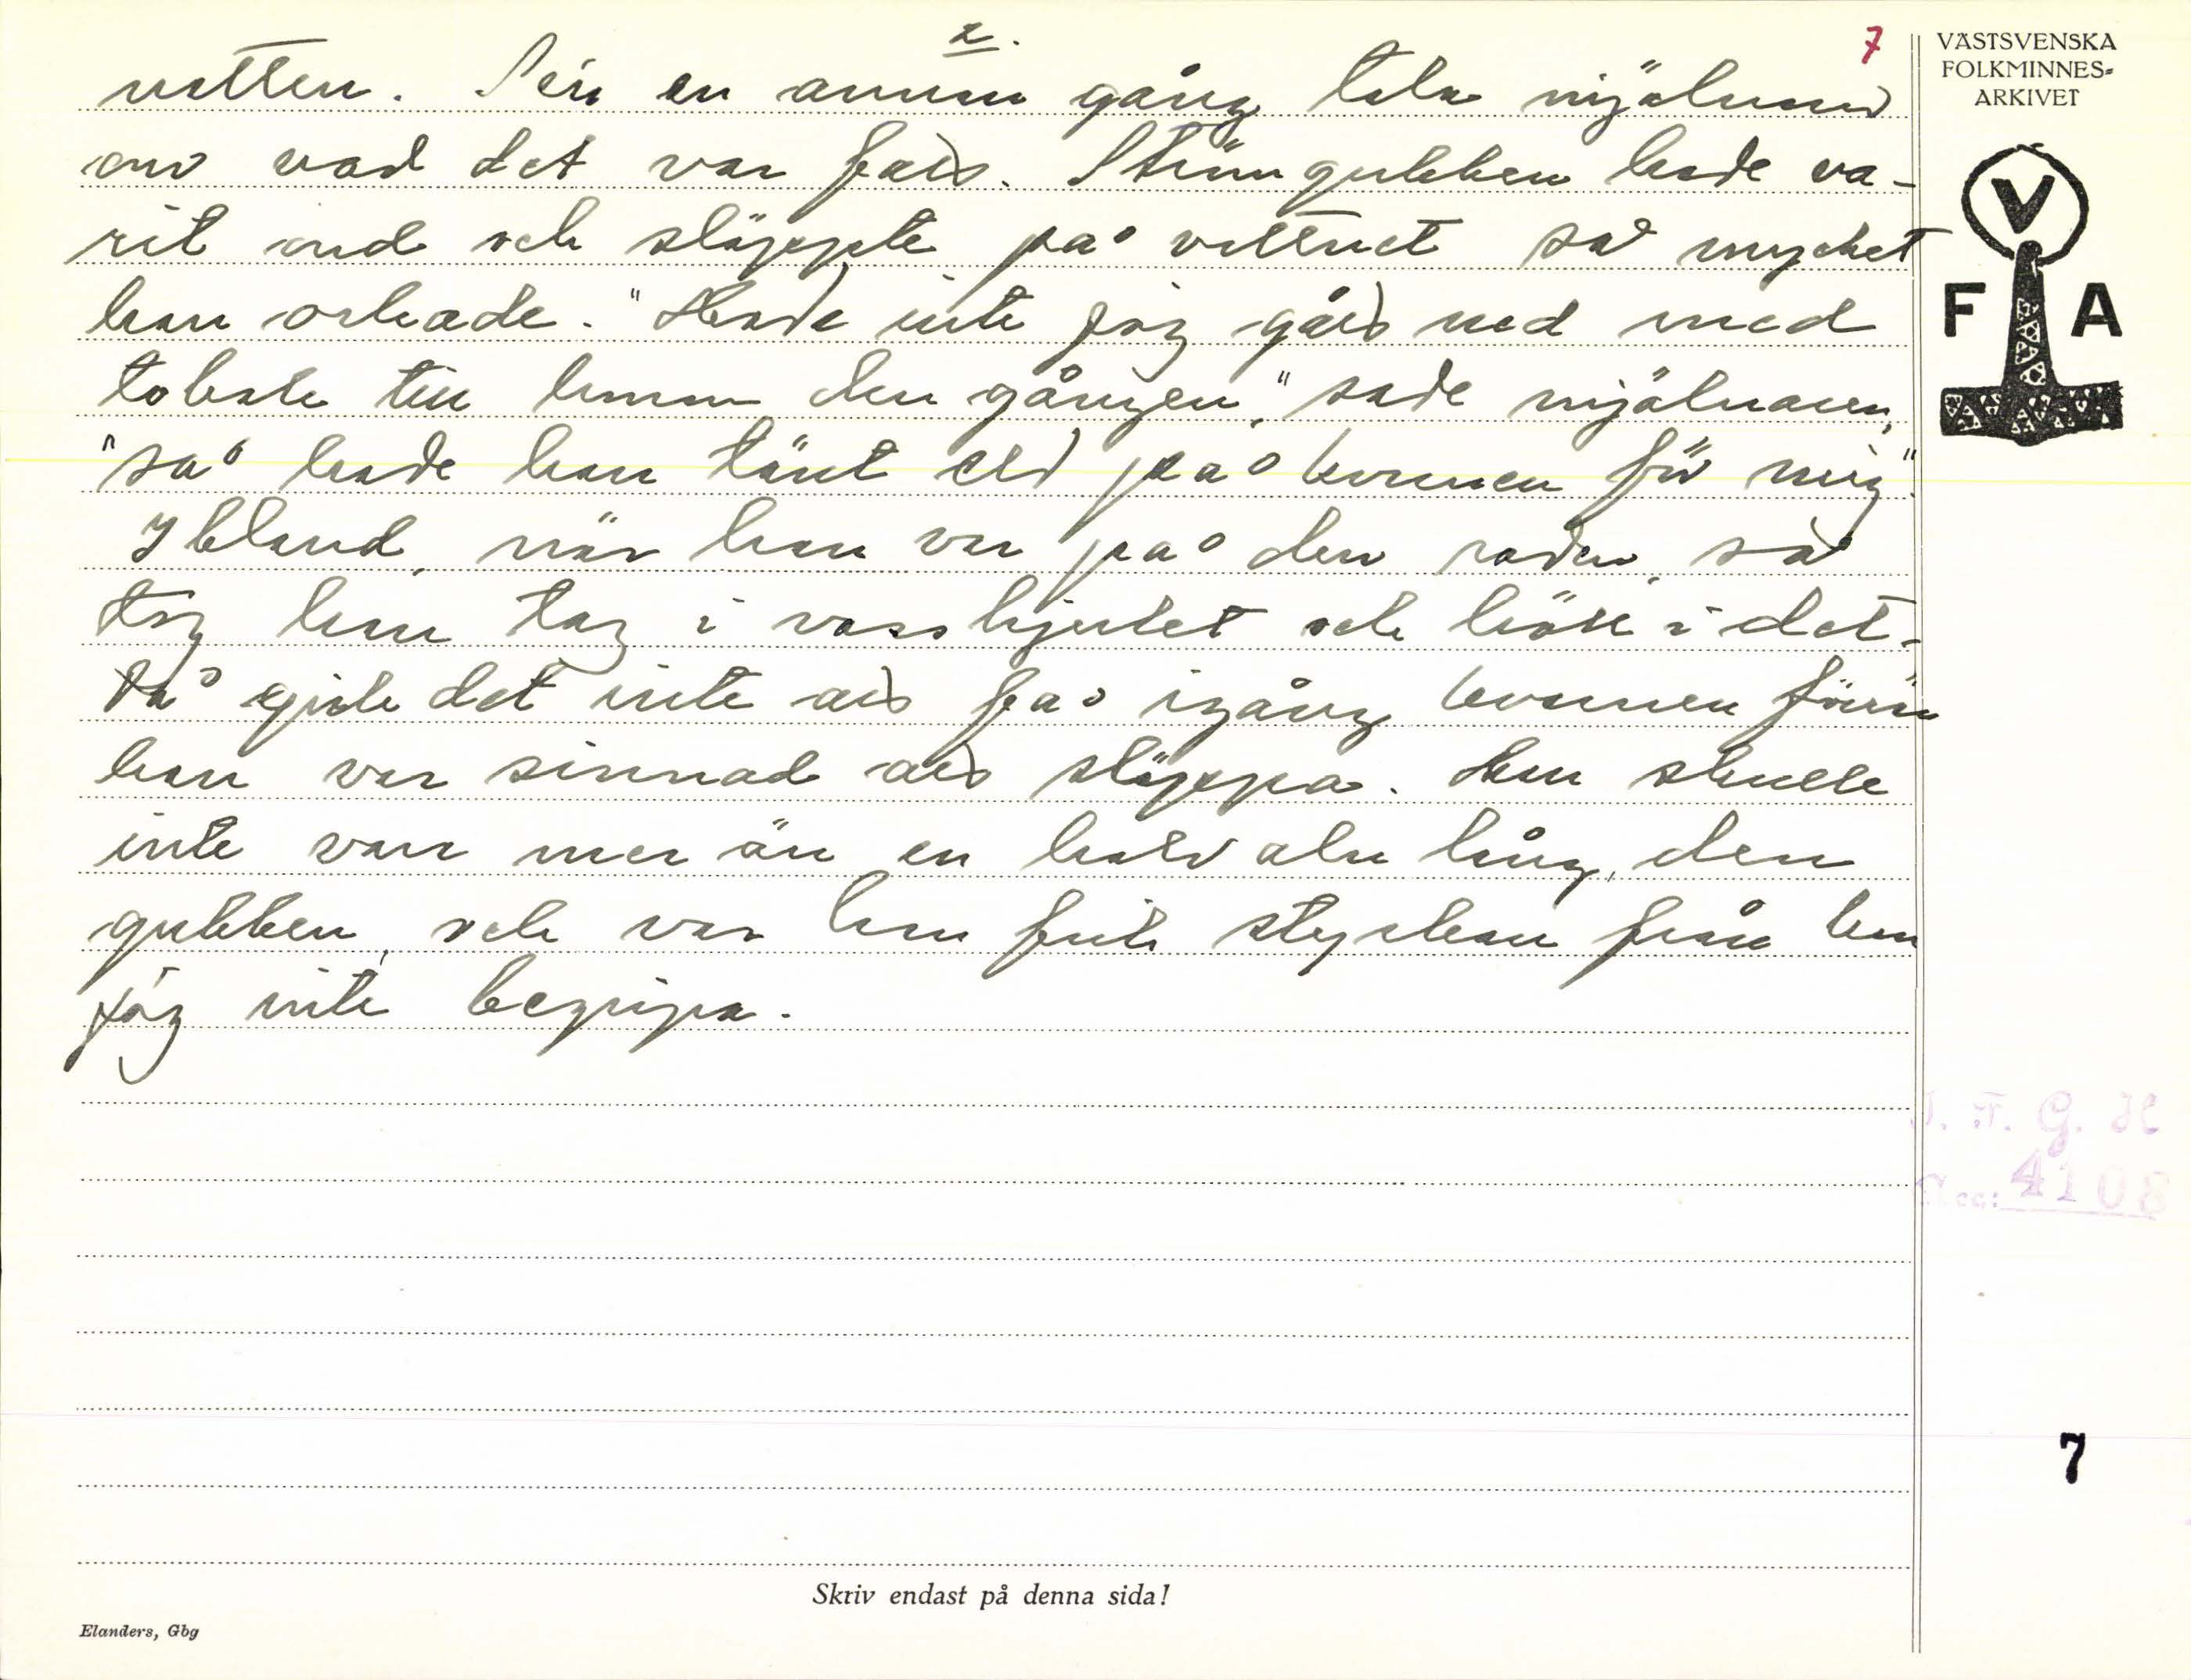 2.
7
natten. Sen en annan gång tala mjölnarn
om vad det var fatt. Strömgubben hade va-
rit ond och släppte på vattnet så mycket
han orkade. "Hade inte jag gått ned med
tobak till honom den gången," sade mjölnaren,
"så hade han tänt eld på kvarnen för mig."
Ibland, när han var på den sidan, så
tog han tag i vasshjulet och höll i det.
Då gick det inte att få igång kvarnen förrän
han var sinnad att släppa. Han skulle
inte vara mer än en halv aln lång, den
gubben, och var han fick styrkan från kan
jag inte begripa.
VÄSTSVENSKA
FOLKMINNES-
ARKIVET
V
F A
I. F. G. H
Acc: 4108
7
Skriv endast på denna sida!
Elanders, Gbg